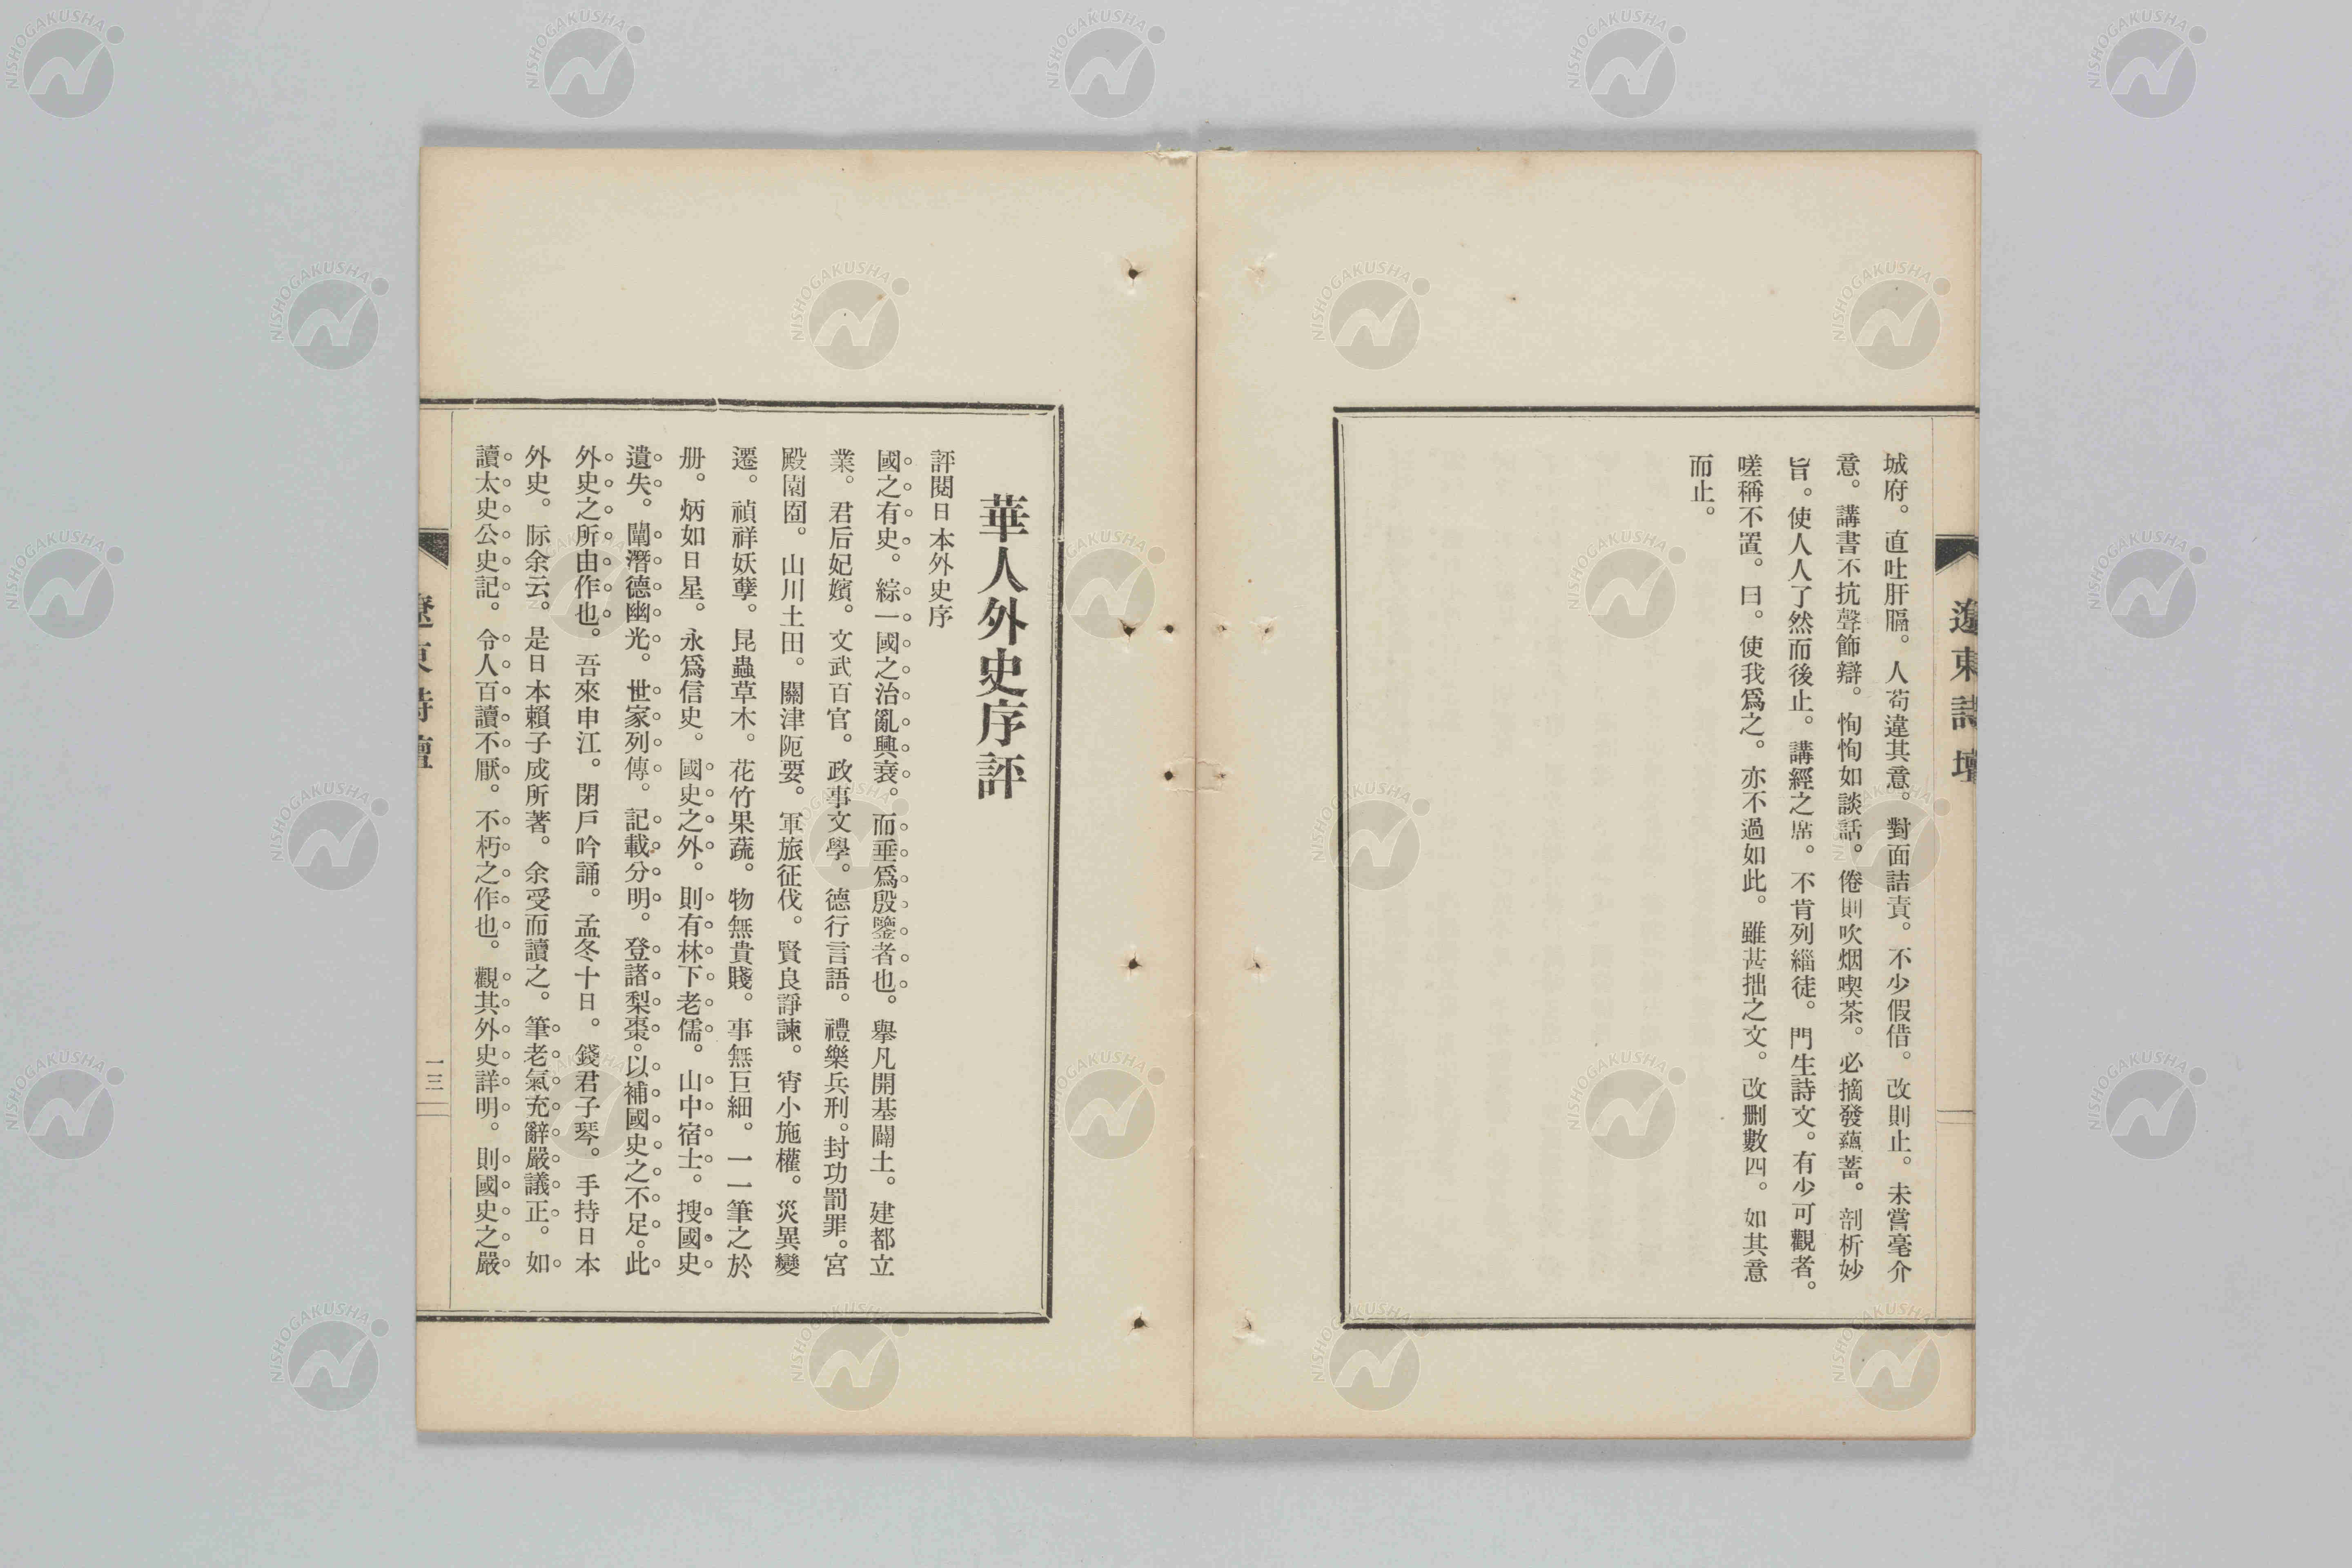 遼東詩壇
城府。直吐肝膈。人苟違其意。對面詰責。不少假借。改則止。未嘗毫介
意。講書不抗聲飾辯。恂恂如談話。倦則吹烟喫茶。必摘發蘊蓄。剖析妙
旨。使人人了然而後止。講經之席。不肯列緇徒。門生詩文。有少可觀者。
嗟稱不置。曰。使我爲之。亦不過如此。雖甚拙之文。改刪數四。如其意
而止。
華人外史序評
評閱日本外史序
國之有史。綜一國之治亂興衰。而垂爲殷鑒者也。擧凡開基闢土。建都立
業。君后妃嬪。文武百官。政事文學。德行言語。禮樂兵刑。封功罰罪。宮
殿園囿。山川土田。關津阨要。軍旅征伐。賢良諍諫。宵小施權。災異變
遷。禎祥妖孽。昆蟲草木。花竹果蔬。物無貴賤。事無巨細。一一筆之於
册。炳如日星。永爲信史。國史之外。則有林下老儒。山中宿士。搜國史
遺失。闡潛德幽光。世家列傳。記載分明。登諸梨棗。以補國史之不足。此
外史之所由作也。吾來申江。閉戶吟誦。孟冬十日。錢君子琴。手持日本
外史。際余云。是日本賴子成所著。余受而讀之。筆老氣充辭嚴議正。如
讀太史公史記。令人百讀不厭。不朽之作也。觀其外史詳明。則國史之嚴
遼東詩壇
一三
NISHOGAKUSHA